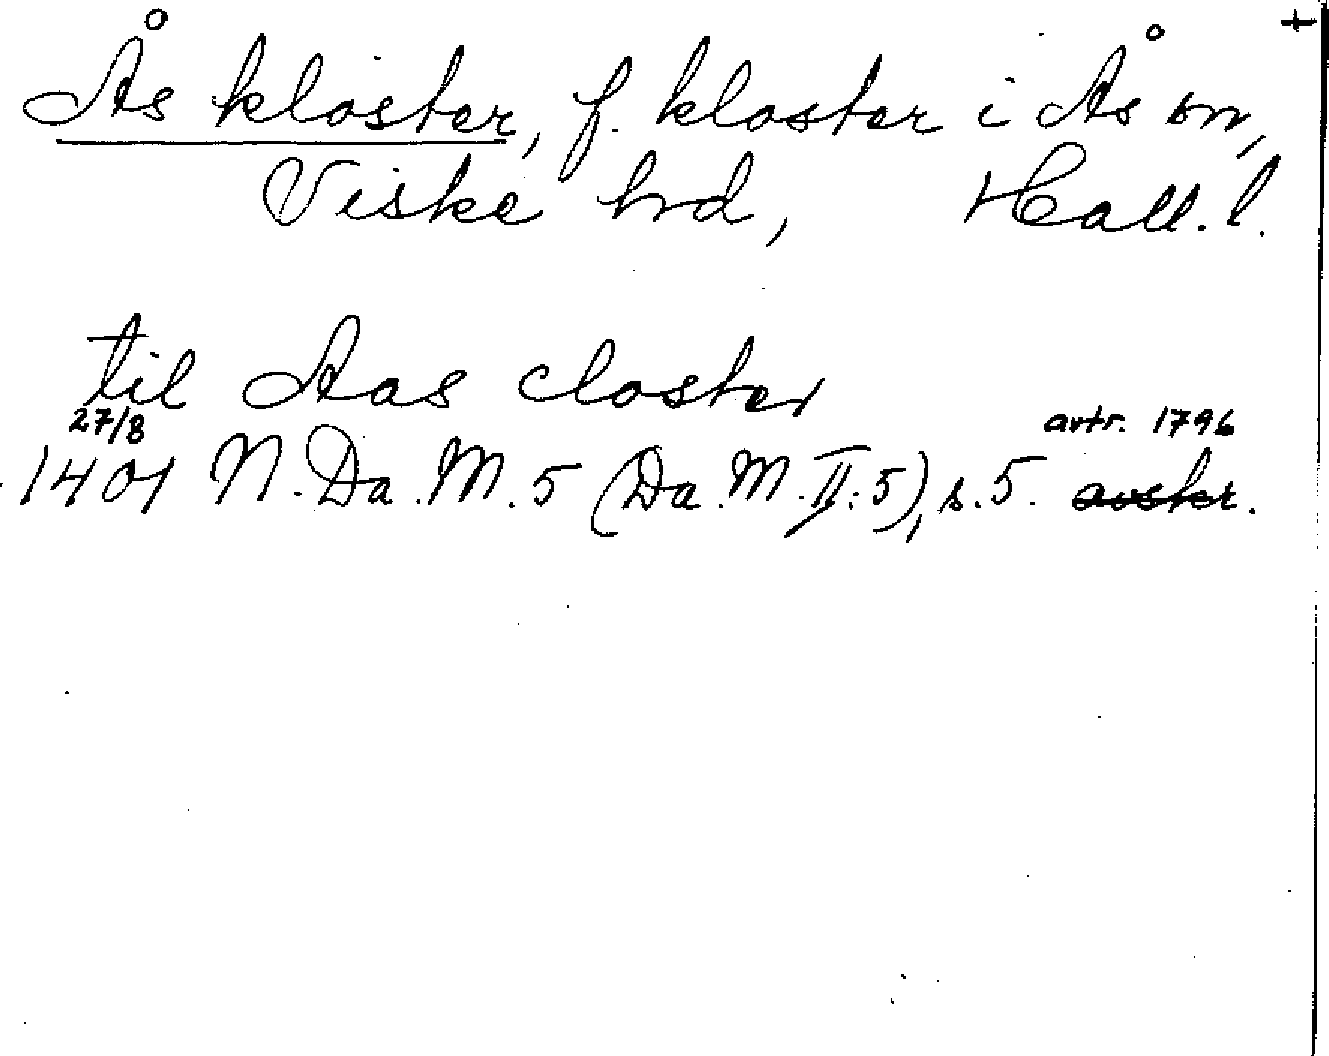 +
Ås kloster, f. kloster i Ås sn,
Viske hrd, Hall. l.
til Aas closter
27/8 avtr. 1796
1401 N. Da. M. 5 (Da. M. II: 5), s. 5. avskr.